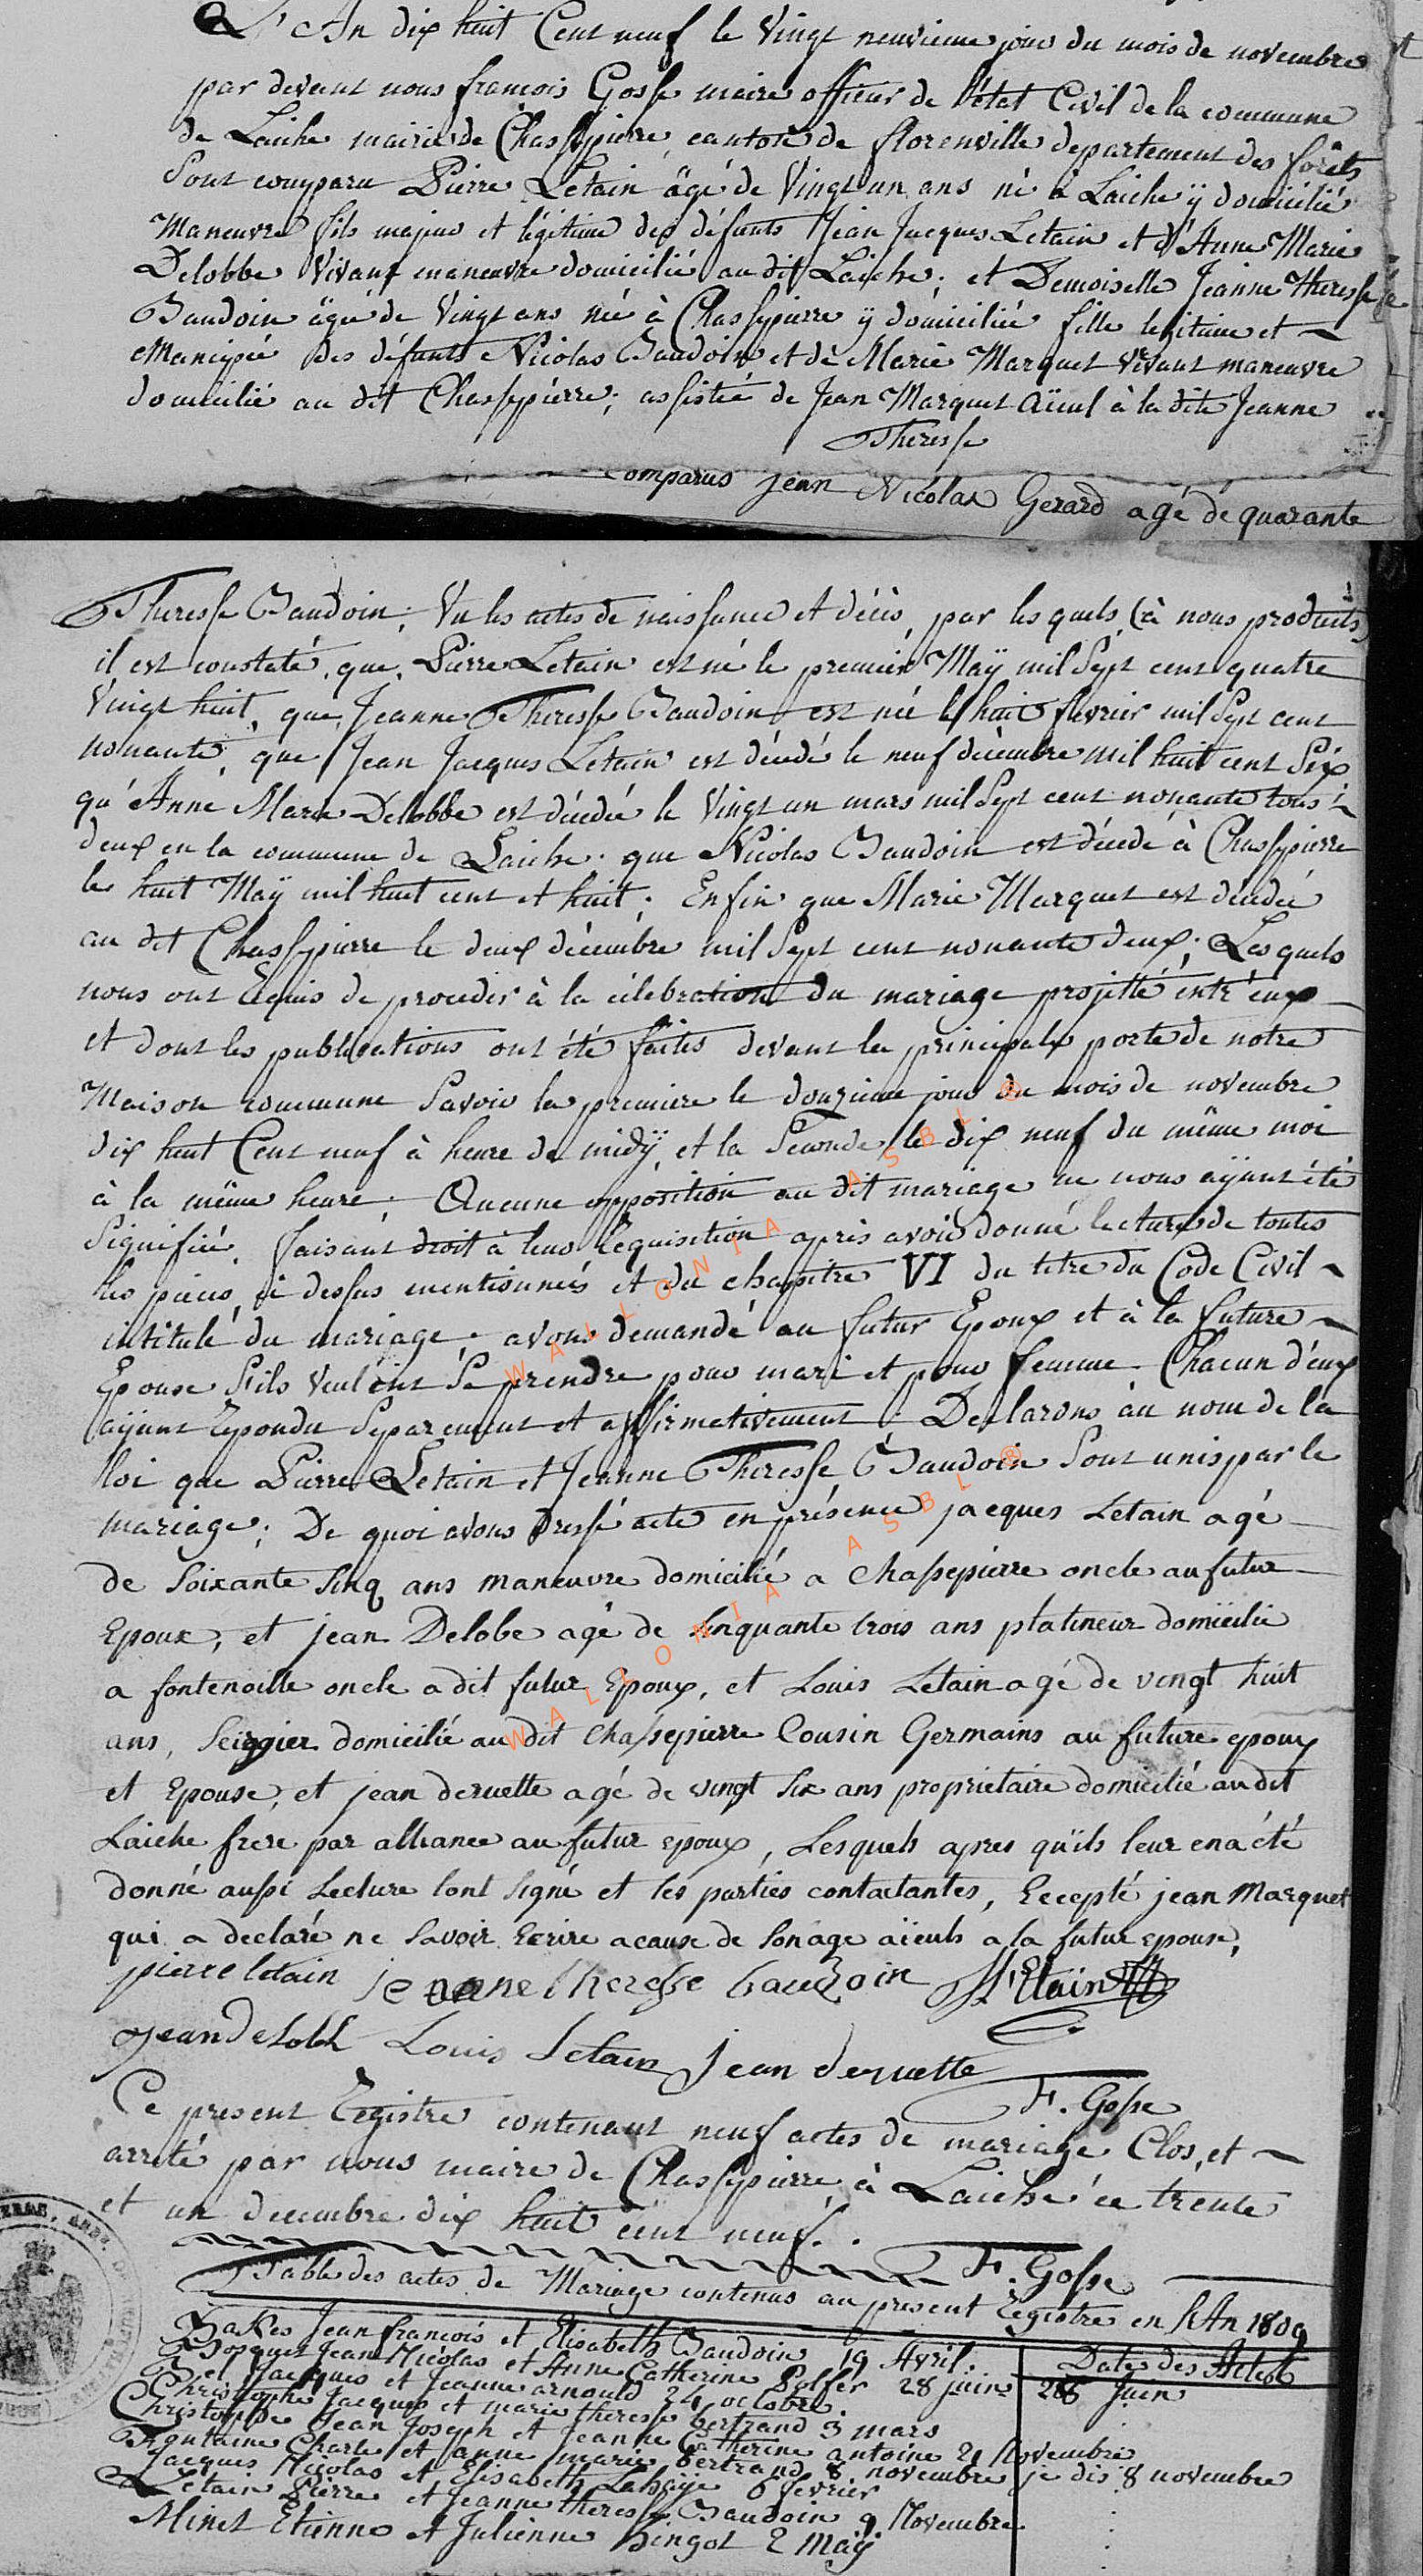 L'An dix huit Cent neuf le Vingt neuvieme jour du mois de novembre
par devant nous francois Gosse maire officier de l'état Civil de la commune
de Laiche mairie de Chassepierre canton de florenville departement des forêts
Sont comparu Pierre Letain âgé de Vingt un ans né à Laiche ÿ domicilié
Maneuvre fils majeur et légitime des défunts Jean Jacques Letain et d'Anne Marie
Delobbe Vivant maneuvre domicilié au dit Laiche; et Demoiselle Jeanne Theresse
Baudoin âgée de Vingt ans née à Chassepierre ÿ domiciliée fille legitime et
emancipée des défunts Nicolas Baudoin et de Marie Marquet Vivant maneuvre
domicilié au dit Chassepierre; assistée de Jean Marquet aÿeul à la dite Jeanne
Theresse
comparus jean Nicolas Gerard agé de quarante
Theresse Baudoin; Vu les actes de naissance et décès, par les quels (à nous produits)
il est constaté, que, Pierre Letain est né le premier Maÿ mil Sept cent quatre
Vingt huit, que, Jeanne Theresse Baudoin est née le huit fevrier mil Sept cent
nonante, que Jean Jacques Letain est décédé le neuf décembre mil huit cent Six
qu'Anne Marie Delobbe est décédée le Vingt un mars mil Sept cent nonante tous i
deux en la commune de Laiche. que Nicolas Baudoin est décédé à Chassepierre
le huit Maÿ mil huit cent et huit; Enfin que Marie Marquet est décédée
au dit Chassepierre le deux décembre mil Sept cent nonante deux; Les quels
nous ont Requis de proceder à la célebration du mariage projetté entr'eux
et dont les publications ont été faites devant la principale porte de notre
Maison commune Savoir la premiere le douzieme jour du mois de novembre
dix huit Cent neuf à heure de midÿ, et la Seconde le dix neuf du même moi
à la même heure; Aucune opposition au dit mariage ne nous aÿant été
Signifiée, faisant droit à leur Requisition après avoir donné lecture de toutes
les pieces ci dessus mentionnées et du chapitre VI du titre du Code Civil
intitulé du mariage; avons demandé au futur Epoux et à la future
Epouse S'ils Veulent Se prendre pour mari et pour femme. Chacun d'eux
aÿant Repondu Separement et affirmativement; Declarons au nom de la
loi que Pierre Letain et Jeanne Theresse Baudoin Sont unis par le
mariage; De quoi avons Dressé acte en présence jacques Letain agé
de Soixante Sinq ans maneuvre domicilié a Chassepierre oncle au futur
Epoux, et jean Delobe agé de Sinquante trois ans platineur domicilié
a fontenoille oncle a dit futur Epoux, et Louis Letain agé de vingt huit
ans, Seiggier domicilié au dit Chassepierre Cousin Germains au future epoux
et Epouse, et jean deruette agé de vingt Six ans proprietaire domicilié au dit
Laiche frere par alliance au futur epoux, Lesquels apres qu'ils leur en a été
donné aussi Lecture l'ont Signé et les parties contactantes, Eccepté jean Marquet
qui a declaré ne Savoir Ecrire a cause de Son age aïeuls a la futur epouse,
pierre letain jeanne theresse baudoin J. l'Etain
jean delobbe Louis Letain jean deruette
F. Gosse
Ce present Registre contenant neuf actes de mariage Clos, et
arreté par nous maire de Chassepierre à Laiche ce trente
et un decembre dix huit cent neuf.
F. Gosse
Table des actes de Mariage contenus au present Registre en l'An 1809
Dates des Actes
Bakes Jean francois et Elisabeth Baudoin 19 Avril.
Bosquet Jean Nicolas et Anne Catherine Polfer 28 juin 28 Juin
et Jacques et Jeanne arnould 24 octobre
Christophe Jacques et marie theresse bertrand 3 mars
Christophe Jean Joseph et Jeanne Catherine antoine 21 Novembre
Fontaine Charle et anne marie bertrand 8 novembre je dis 8 novembre
Jacques Nicolas et Elisabeth Lahaÿe 6 fevrier
Letain Pierre et Jeanne theresse Baudoin 9 Novembre
Minet Etienne et Julienne hingot 2 Maÿ
WALLONIA ASBL ®
WALLONIA ASBL ®